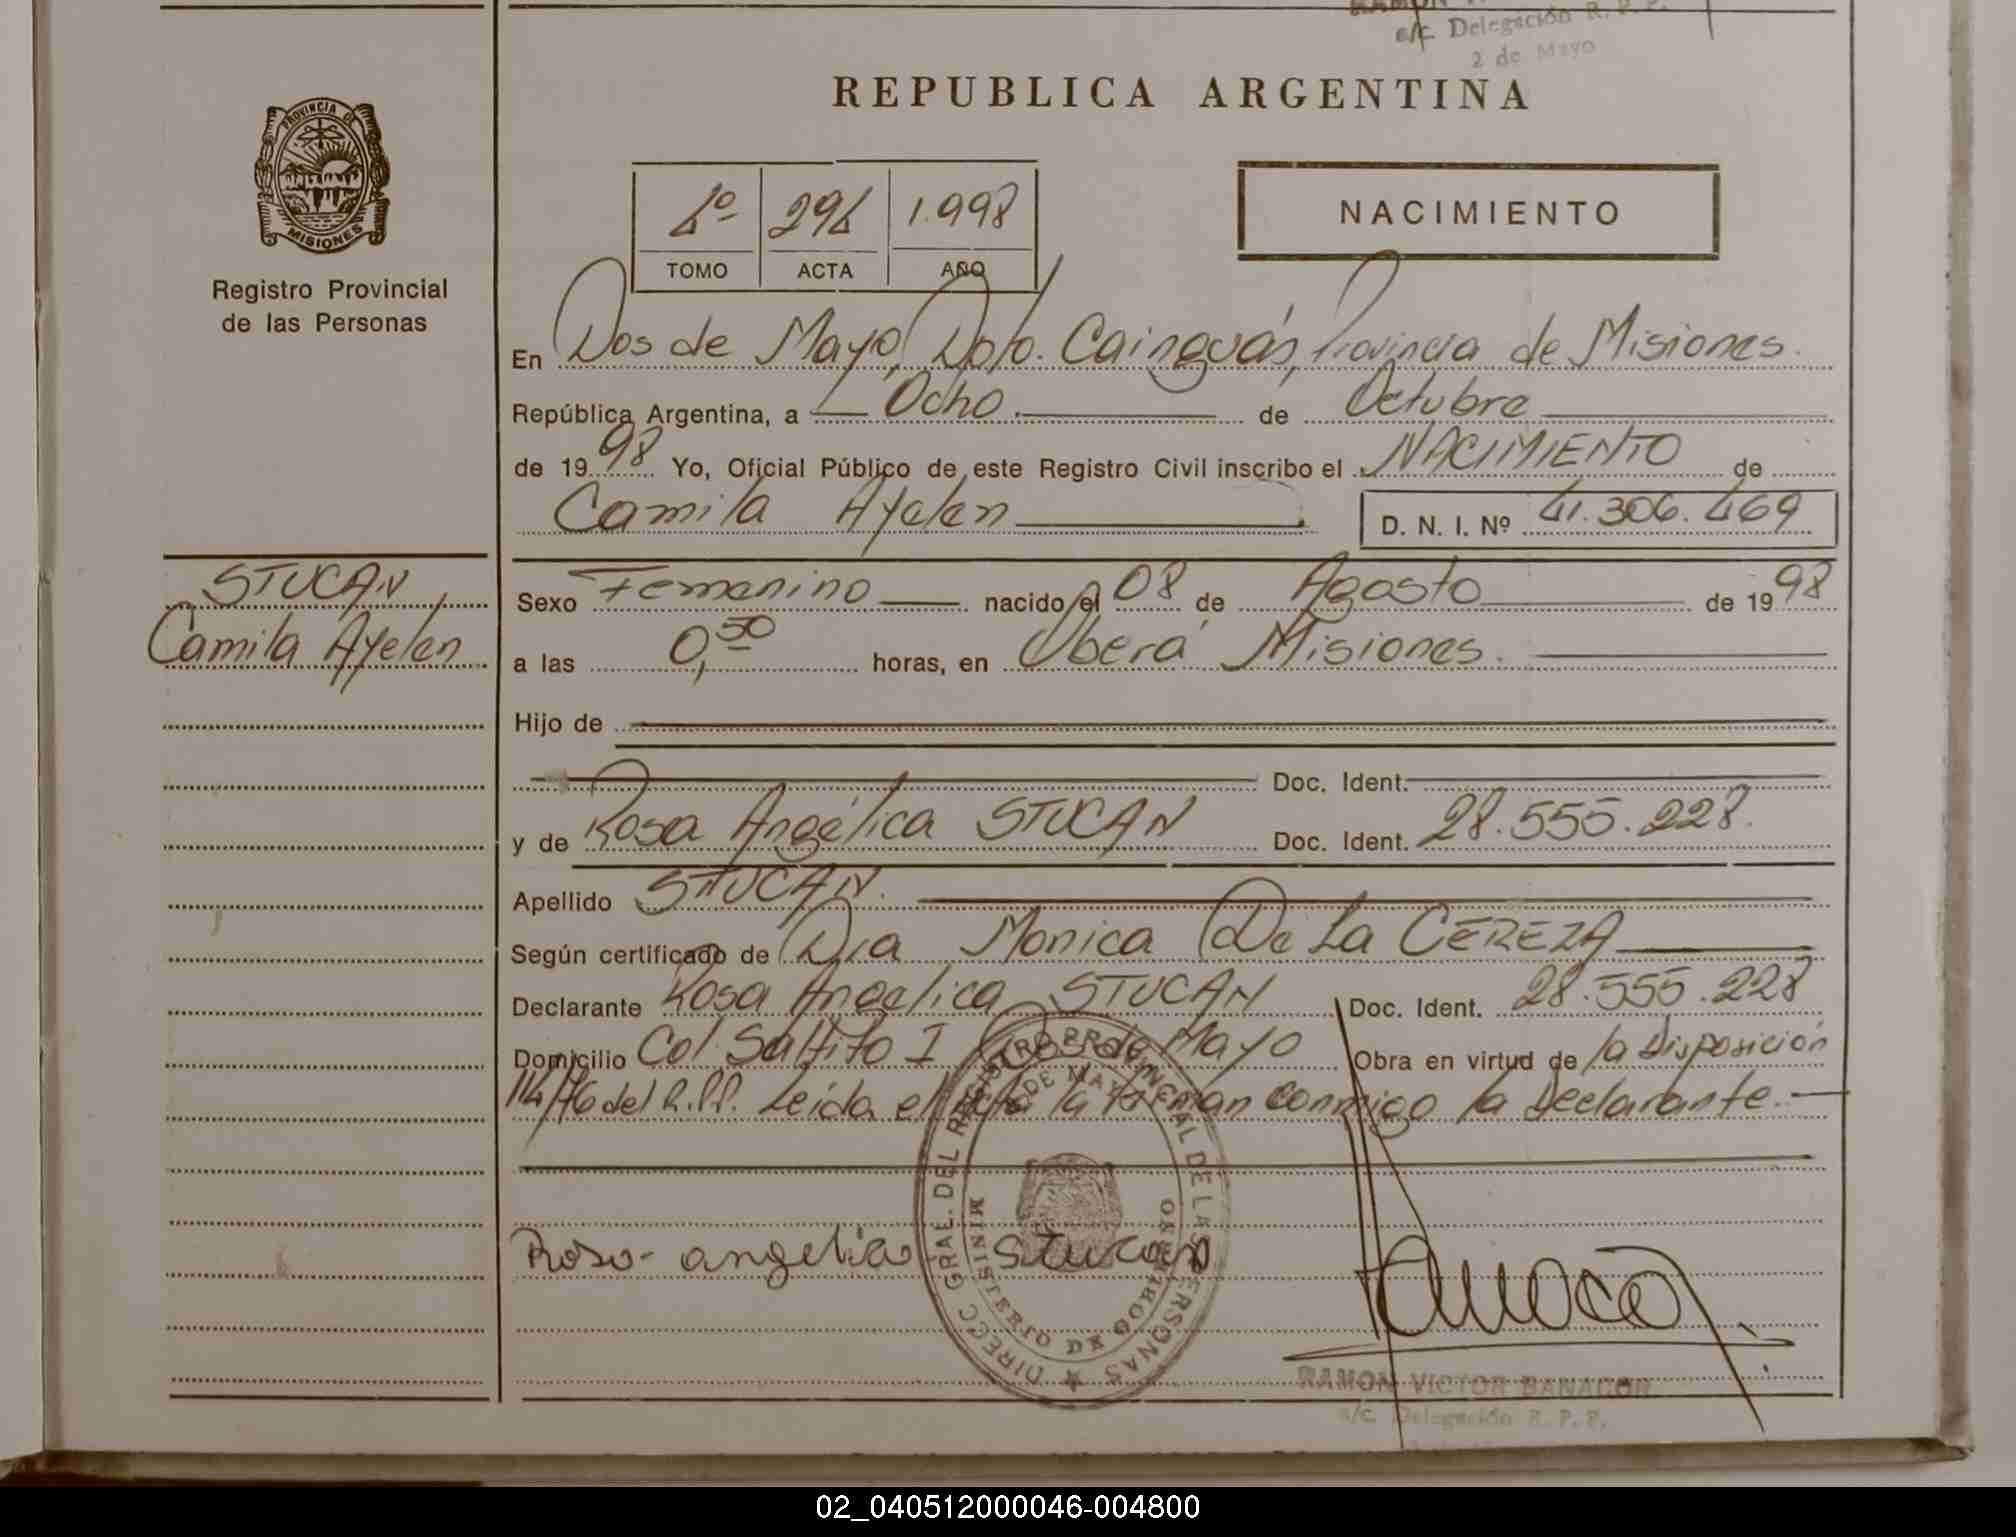 a/c Delegación R. P. P.
2 de Mayo
REPUBLICA ARGENTINA
PROVINCIA DE
MISIONES
Registro Provincial
de las Personas
4º 294 1.998
TOMO ACTA AÑO
NACIMIENTO
En Dos de Mayo, Dpto. Cainguás, Provincia de Misiones.
República Argentina, a Ocho de Octubre
de 1998 Yo, Oficial Público de este Registro Civil inscribo el NACIMIENTO de
Camila Ayelen D. N. I. Nº 41.306.469
STUCAN
Camila Ayelen
Sexo Femenino nacido el 08 de Agosto de 1998
a las 0,50 horas, en Oberá Misiones.
Hijo de
Doc. Ident.
y de Rosa Angélica STUCAN Doc. Ident. 28.555.228.
Apellido STUCAN.
Según certificado de Dra Monica De La CEREZA
Declarante Rosa Angelica STUCAN Doc. Ident. 28.555.228
Domicilio Col. Saltito I Dos de Mayo Obra en virtud de la Disposición
114/76 del R.P.P. Leida el Acta la Firman conmigo la Declarante.-
Roso angelia Stucan
DIRECC GRAL. DEL REGISTRO PROVINCIAL DE LAS PERSONAS
2 DE MAYO
MINISTERIO DE GOBIERNO
RAMON VICTOR BANACOR
a/c Delegación R. P. P.
02_040512000046-004800